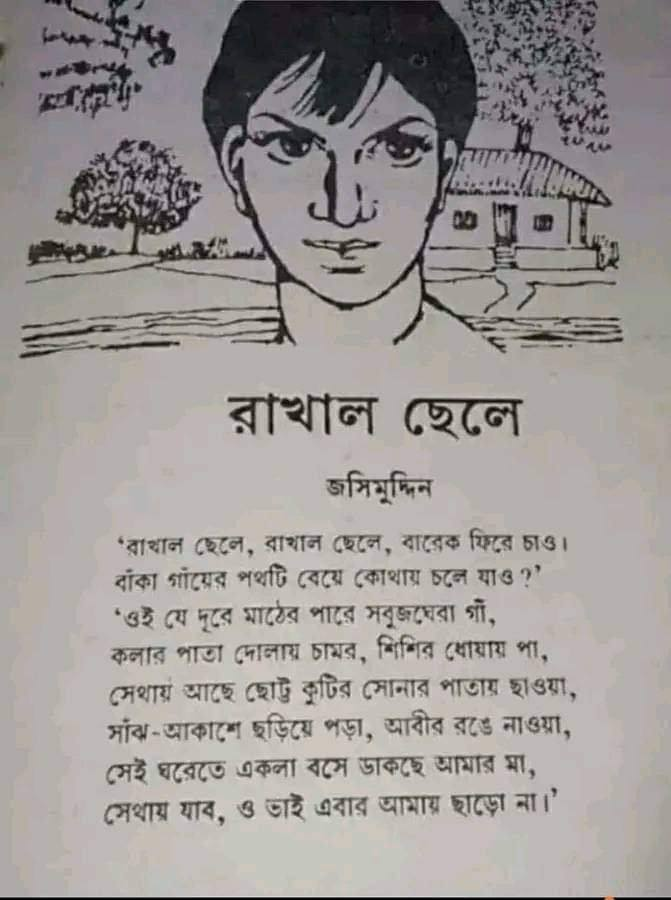 রাখাল ছেলে
জসিমুদ্দিন
‘রাখাল ছেলে, রাখাল ছেলে, বারেক ফিরে চাও।
বাঁকা গাঁয়ের পথটি বেয়ে কোথায় চলে যাও ?’
‘ওই যে দূরে মাঠের পারে সবুজঘেরা গাঁ,
কলার পাতা দোলায় চামর, শিশির ধোয়ায় পা,
সেথায় আছে ছোট্ট কুটির সোনার পাতায় ছাওয়া,
সাঁঝ-আকাশে ছড়িয়ে পড়া, আবীর রঙে নাওয়া,
সেই ঘরেতে একলা বসে ডাকছে আমার মা,
সেথায় যাব, ও ভাই এবার আমায় ছাড়ো না।’